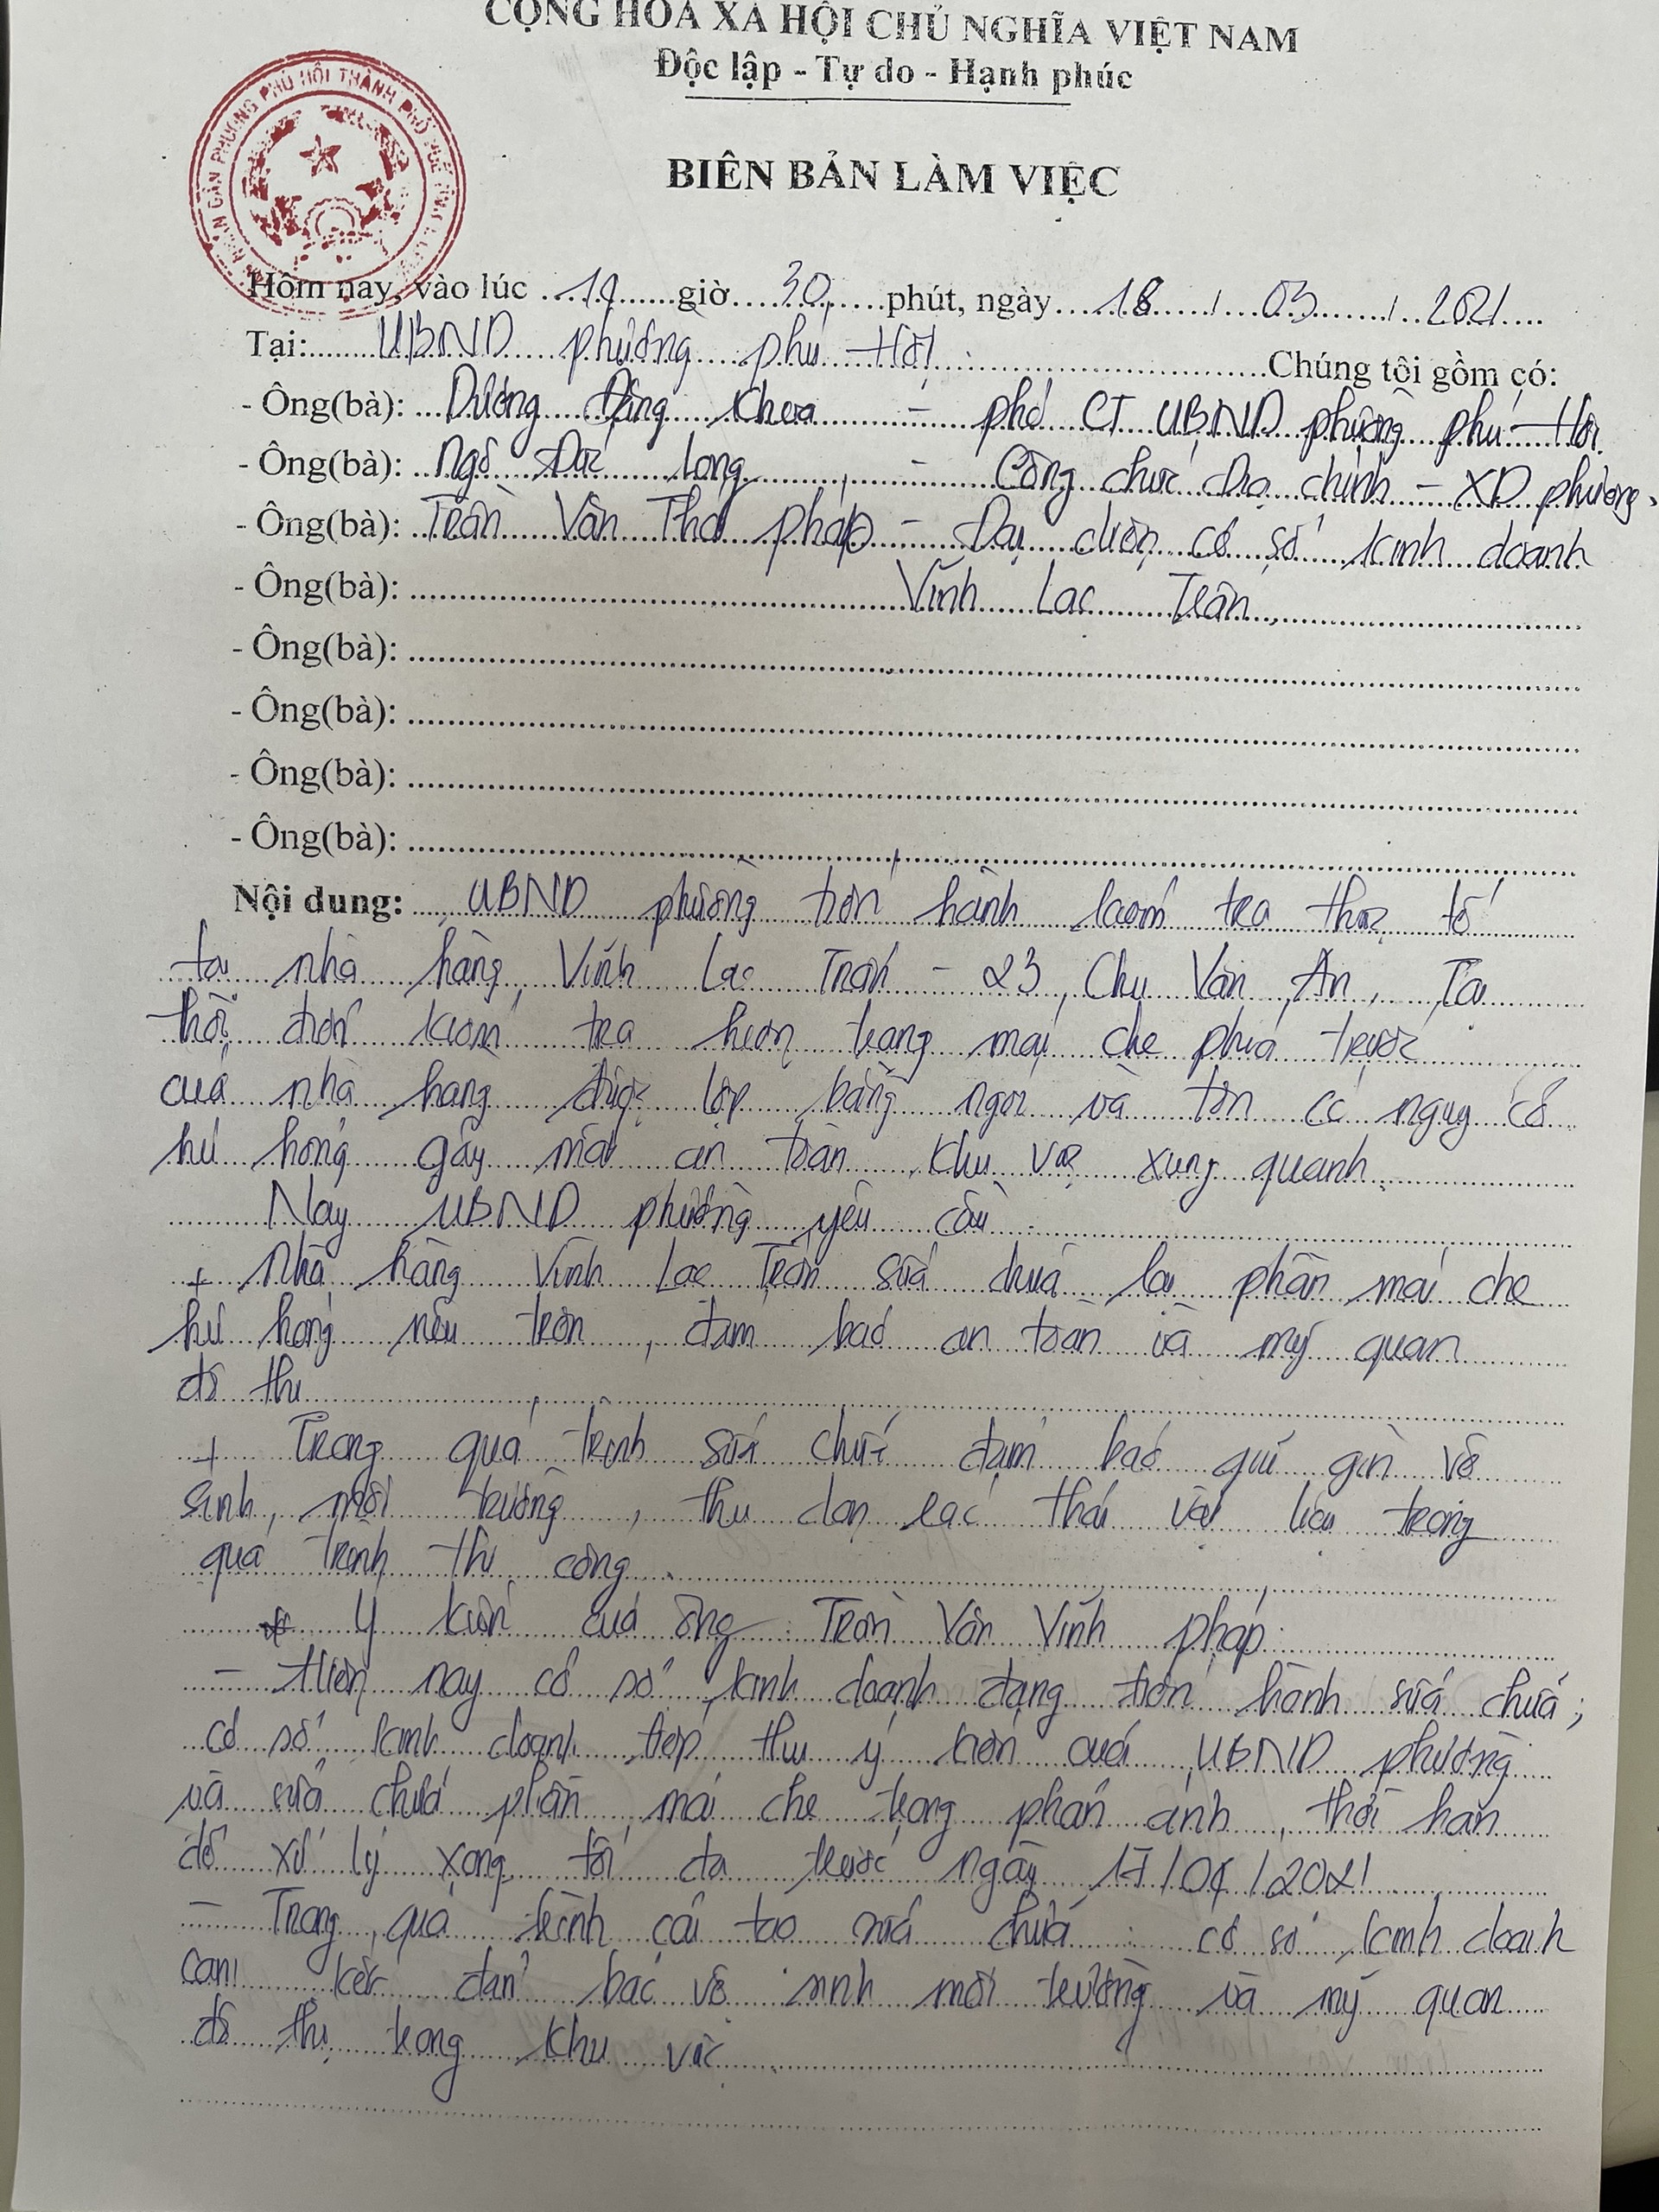 CỘNG HÒA XÃ HỘI CHỦ NGHĨA VIỆT NAM
Độc lập - Tự do - Hạnh phúc
BIÊN BẢN LÀM VIỆC
NHÂN DÂN PHƯỜNG PHÚ HỘI THÀNH PHỐ HUẾ TỈNH
Hôm nay, vào lúc 14 giờ 30 phút, ngày 18 / 03 / 2021
Tại: UBND phường phú Hội Chúng tôi gồm có:
- Ông(bà): Dương Đăng Khoa - phó CT UBND phường phú Hội.
- Ông(bà): Ngô Đức Long - Công chức Địa chính - XD phường.
- Ông(bà): Trần Văn Thái pháp - Đại diện cơ sở kinh doanh
- Ông(bà): Vĩnh Lạc Trân
- Ông(bà):
- Ông(bà):
- Ông(bà):
- Ông(bà):
Nội dung: UBND phường tiến hành kiểm tra thực tế
tại nhà hàng Vĩnh Lạc Trân - 23 Chu Văn An, Tại
thời điểm kiểm tra hiện trạng mái che phía trước
của nhà hàng được lợp bằng ngói và tôn có nguy cơ
hư hỏng gây mất an toàn khu vực xung quanh.
Nay UBND phường yêu cầu:
+ Nhà hàng Vĩnh Lạc Trân sửa chữa lại phần mái che
hư hỏng nêu trên, đảm bảo an toàn và mỹ quan
đô thị
+ Trong quá trình sửa chữa đảm bảo giữ gìn vệ
sinh, môi trường, thu dọn rác thải vật liệu trong
quá trình thi công.
* Ý kiến của ông: Trần Văn Vĩnh pháp:
- Hiện nay cơ sở kinh doanh đang tiến hành sửa chữa;
cơ sở kinh doanh tiếp thu ý kiến của UBND phường
và sửa chữa phần mái che trong phản ánh, thời hạn
để xử lý xong tối đa trước ngày 17/04/2021
- Trong quá trình cải tạo sửa chữa: cơ sở kinh doanh
cam kết đảm bảo vệ sinh môi trường và mỹ quan
đô thị trong khu vực